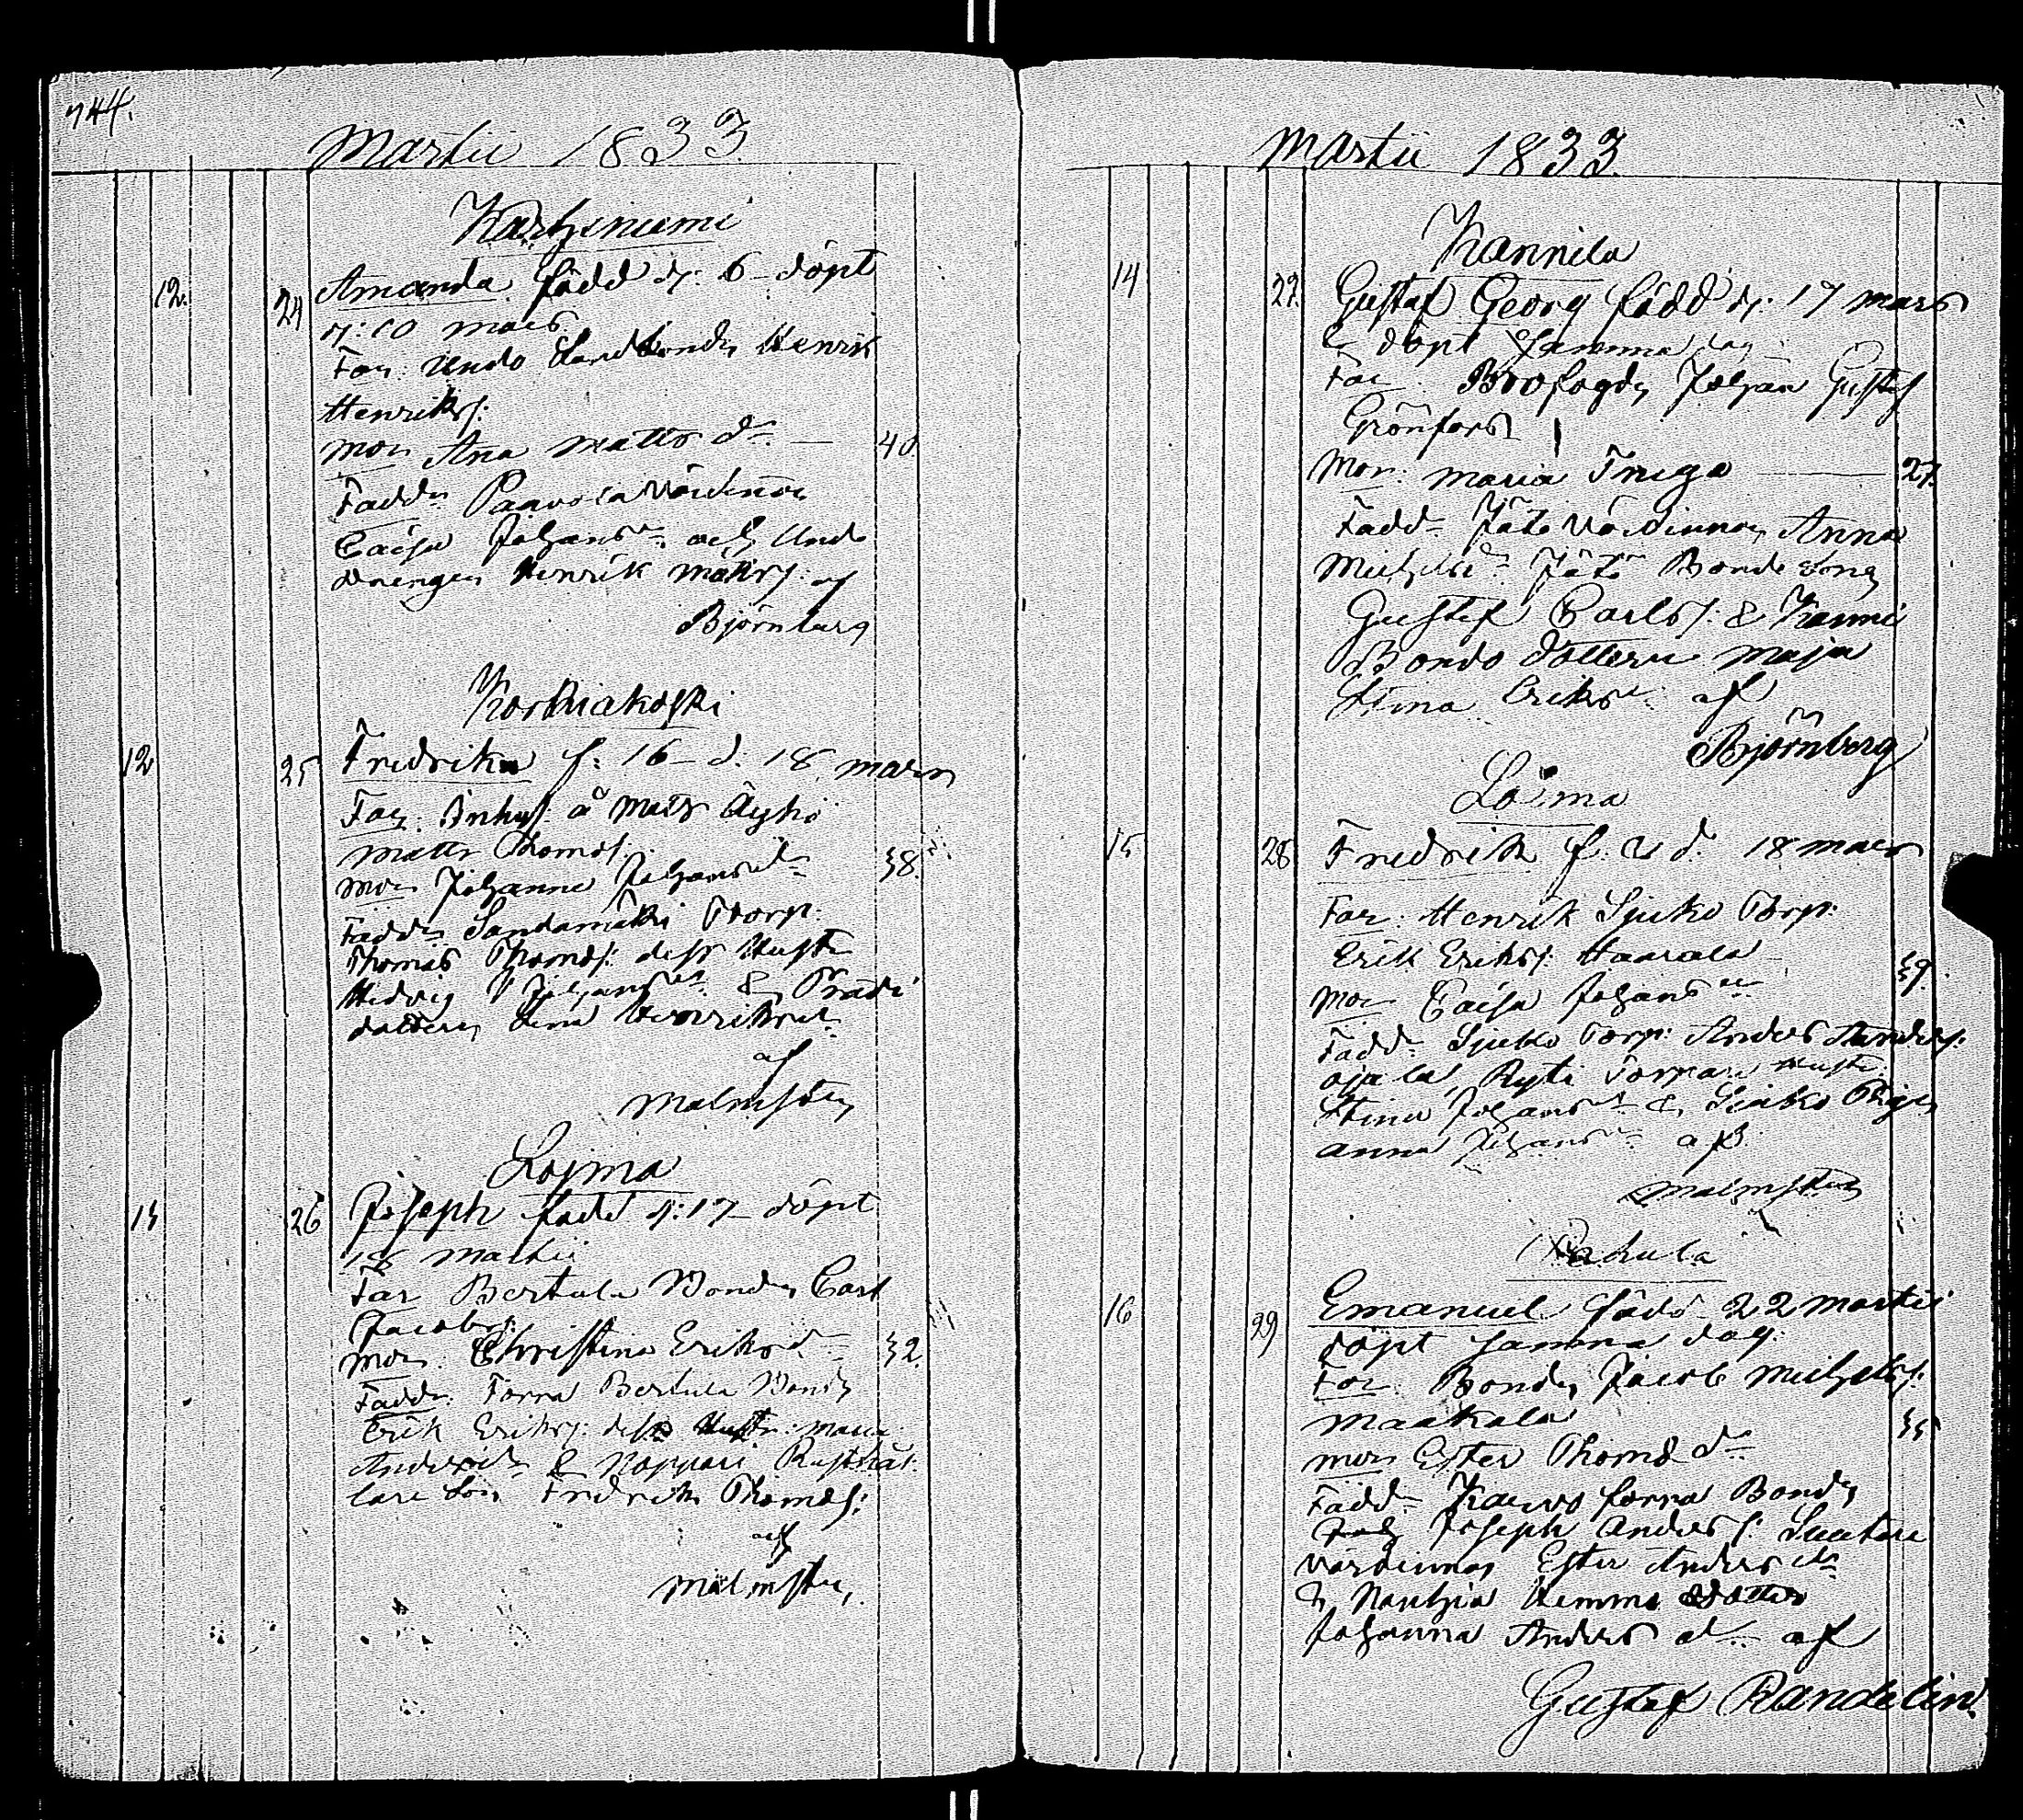 744.
Martii 1833.
Karhiniemi
12. 24 Amanda född d: 6 döpt
d: 10 mars.
Far: Undo Landbonde Henrik
Henriks:
Mor Ana Matts dr — 40
Fadd: Paavola Värdinnan
Caisa Johansdr och Undo
drengen Henrik Mattss: af
Björnberg
Korkiakoski
12 25 Fredrika f: 16 d. 18 mars
Far: Inhys: å Mats Äyhö
Matts Thomas:
Mor Johanna Johansdr 38.
Fadd: Sandamäki Torp:
Thomas Thomas: dess Hustr
Hedvig Johansdr &
dotteren Lena Henriksdr
af
Malmsten
Loima
15 26 Joseph född d: 17 döpt
18 Martii
Far Bertula Bonde Carl
Jacobs:
Mor. Christina Eriksdr 32.
Fadd: Forra Bertula Bonde
Erik Eriks: dess Hustr: Maria
Andersdr & Noppari Rusthål
lare Son Fredrik Thomas:
af
Malmsten,
Martii 1833.
Kannila
14 27. Gustaf Georg född d: 17 mars
& döpt samma dag
Far: Brofogden Johan Gustaf
Grönfors
Mor: Maria Friga — 27.
Fadd: Jäte Värdinnan Anna
Michelsdr Jäte Bonde Sonen
Gustaf Carls: & Kanni
Bondo dottern Maja
Stina Eriksdr af
Björnberg
Loima
15 28 Fredrik f. & d. 18 mars
Far: Henrik Sjuko Torp:
Erik Eriks: Haarala
Mor Caisa Johansdr 39.
Fadd: Sjuko Torp: Anders Anders:
Ojala, Ryti Torpare Hustr:
Stina Johansdr & Sjuko Pigan
Anna Johansdr af
Malmsten
16 29 Emanuel född 22 Martii
döpt samma dag.
Far: Bonden Jacob Michels:
Maakala 35
Mor Ester Thomas dr
Fadd: Kauvo forra Bonde
Joseph Anders: Suutari
Värdinnan Ester Anders dr
& Hemma Dotter
Johanna Anders dr af
Gustaf Randelin.